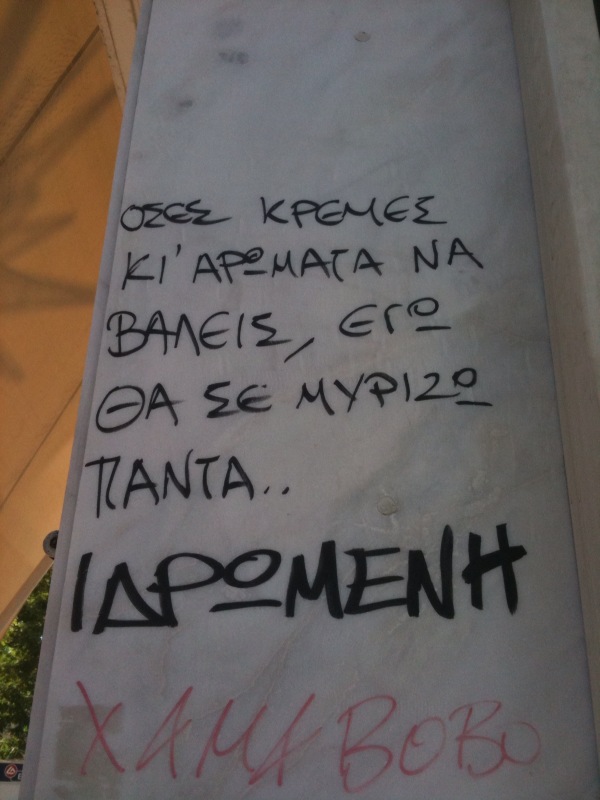 ΟΣΕΣ ΚΡΕΜΕΣ
ΚΙ' ΑΡΩΜΑΤΑ ΝΑ
ΒΑΛΕΙΣ, ΕΓΩ
ΘΑ ΣΕ ΜΥΡΙΖΩ
ΠΑΝΤΑ..
ΙΔΡΩΜΕΝΗ
ΧΑΜΑ ΒΟΒΟ